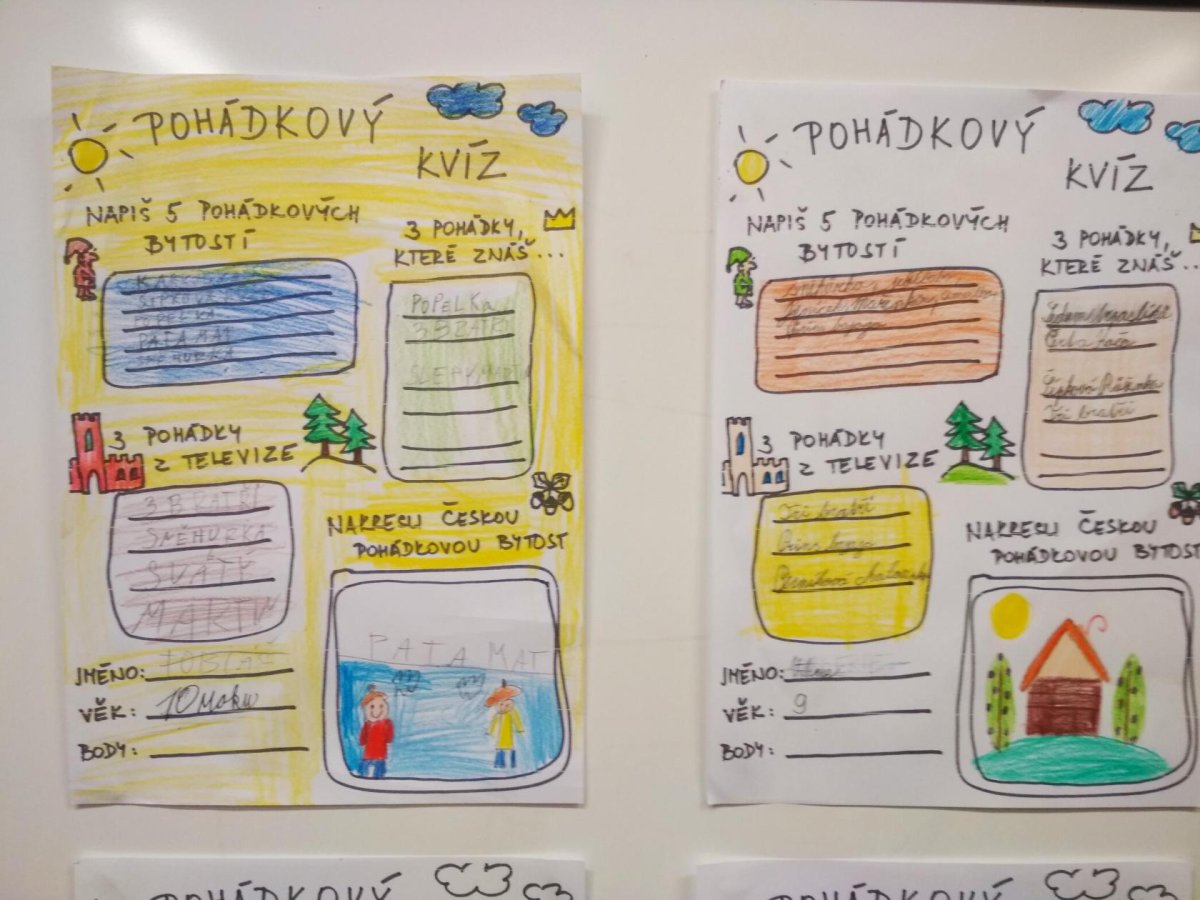 POHÁDKOVÝ
KVÍZ
NAPIŠ 5 POHÁDKOVÝCH
BYTOSTÍ
POPELKA
PATA MAT
3 POHÁDKY,
KTERÉ ZNÁŠ...
POPELKA
3 BRATŘI
3 POHÁDKY
Z TELEVIZE
3 BRATŘI
SNĚHURKA
SVATÝ
MARTIN
NAKRESLI ČESKOU
POHÁDKOVOU BYTOST
PATA MAT
JMÉNO: TOBIÁŠ
VĚK: 10 roku
BODY:
POHÁDKOVÝ
KVÍZ
NAPIŠ 5 POHÁDKOVÝCH
BYTOSTÍ
3 POHÁDKY,
KTERÉ ZNÁŠ...
Šípková Růženka
Tři bratři
3 POHÁDKY
Z TELEVIZE
Tři bratři
NAKRESLI ČESKOU
POHÁDKOVOU BYTOST
JMÉNO:
VĚK: 9
BODY:
POHÁDKOVÝ
POHÁDKOVÝ